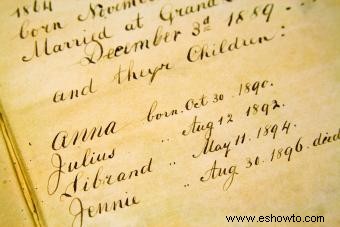 1864
born Novem
Married at Grand
December 3d 1889 - - -
and theyr Children:
Anna born Oct 30. 1890.
Julius " Aug 12 1892.
Sibrand " May 11. 1894.
Jennie " Aug 30. 1896. died
www.eshowto.com